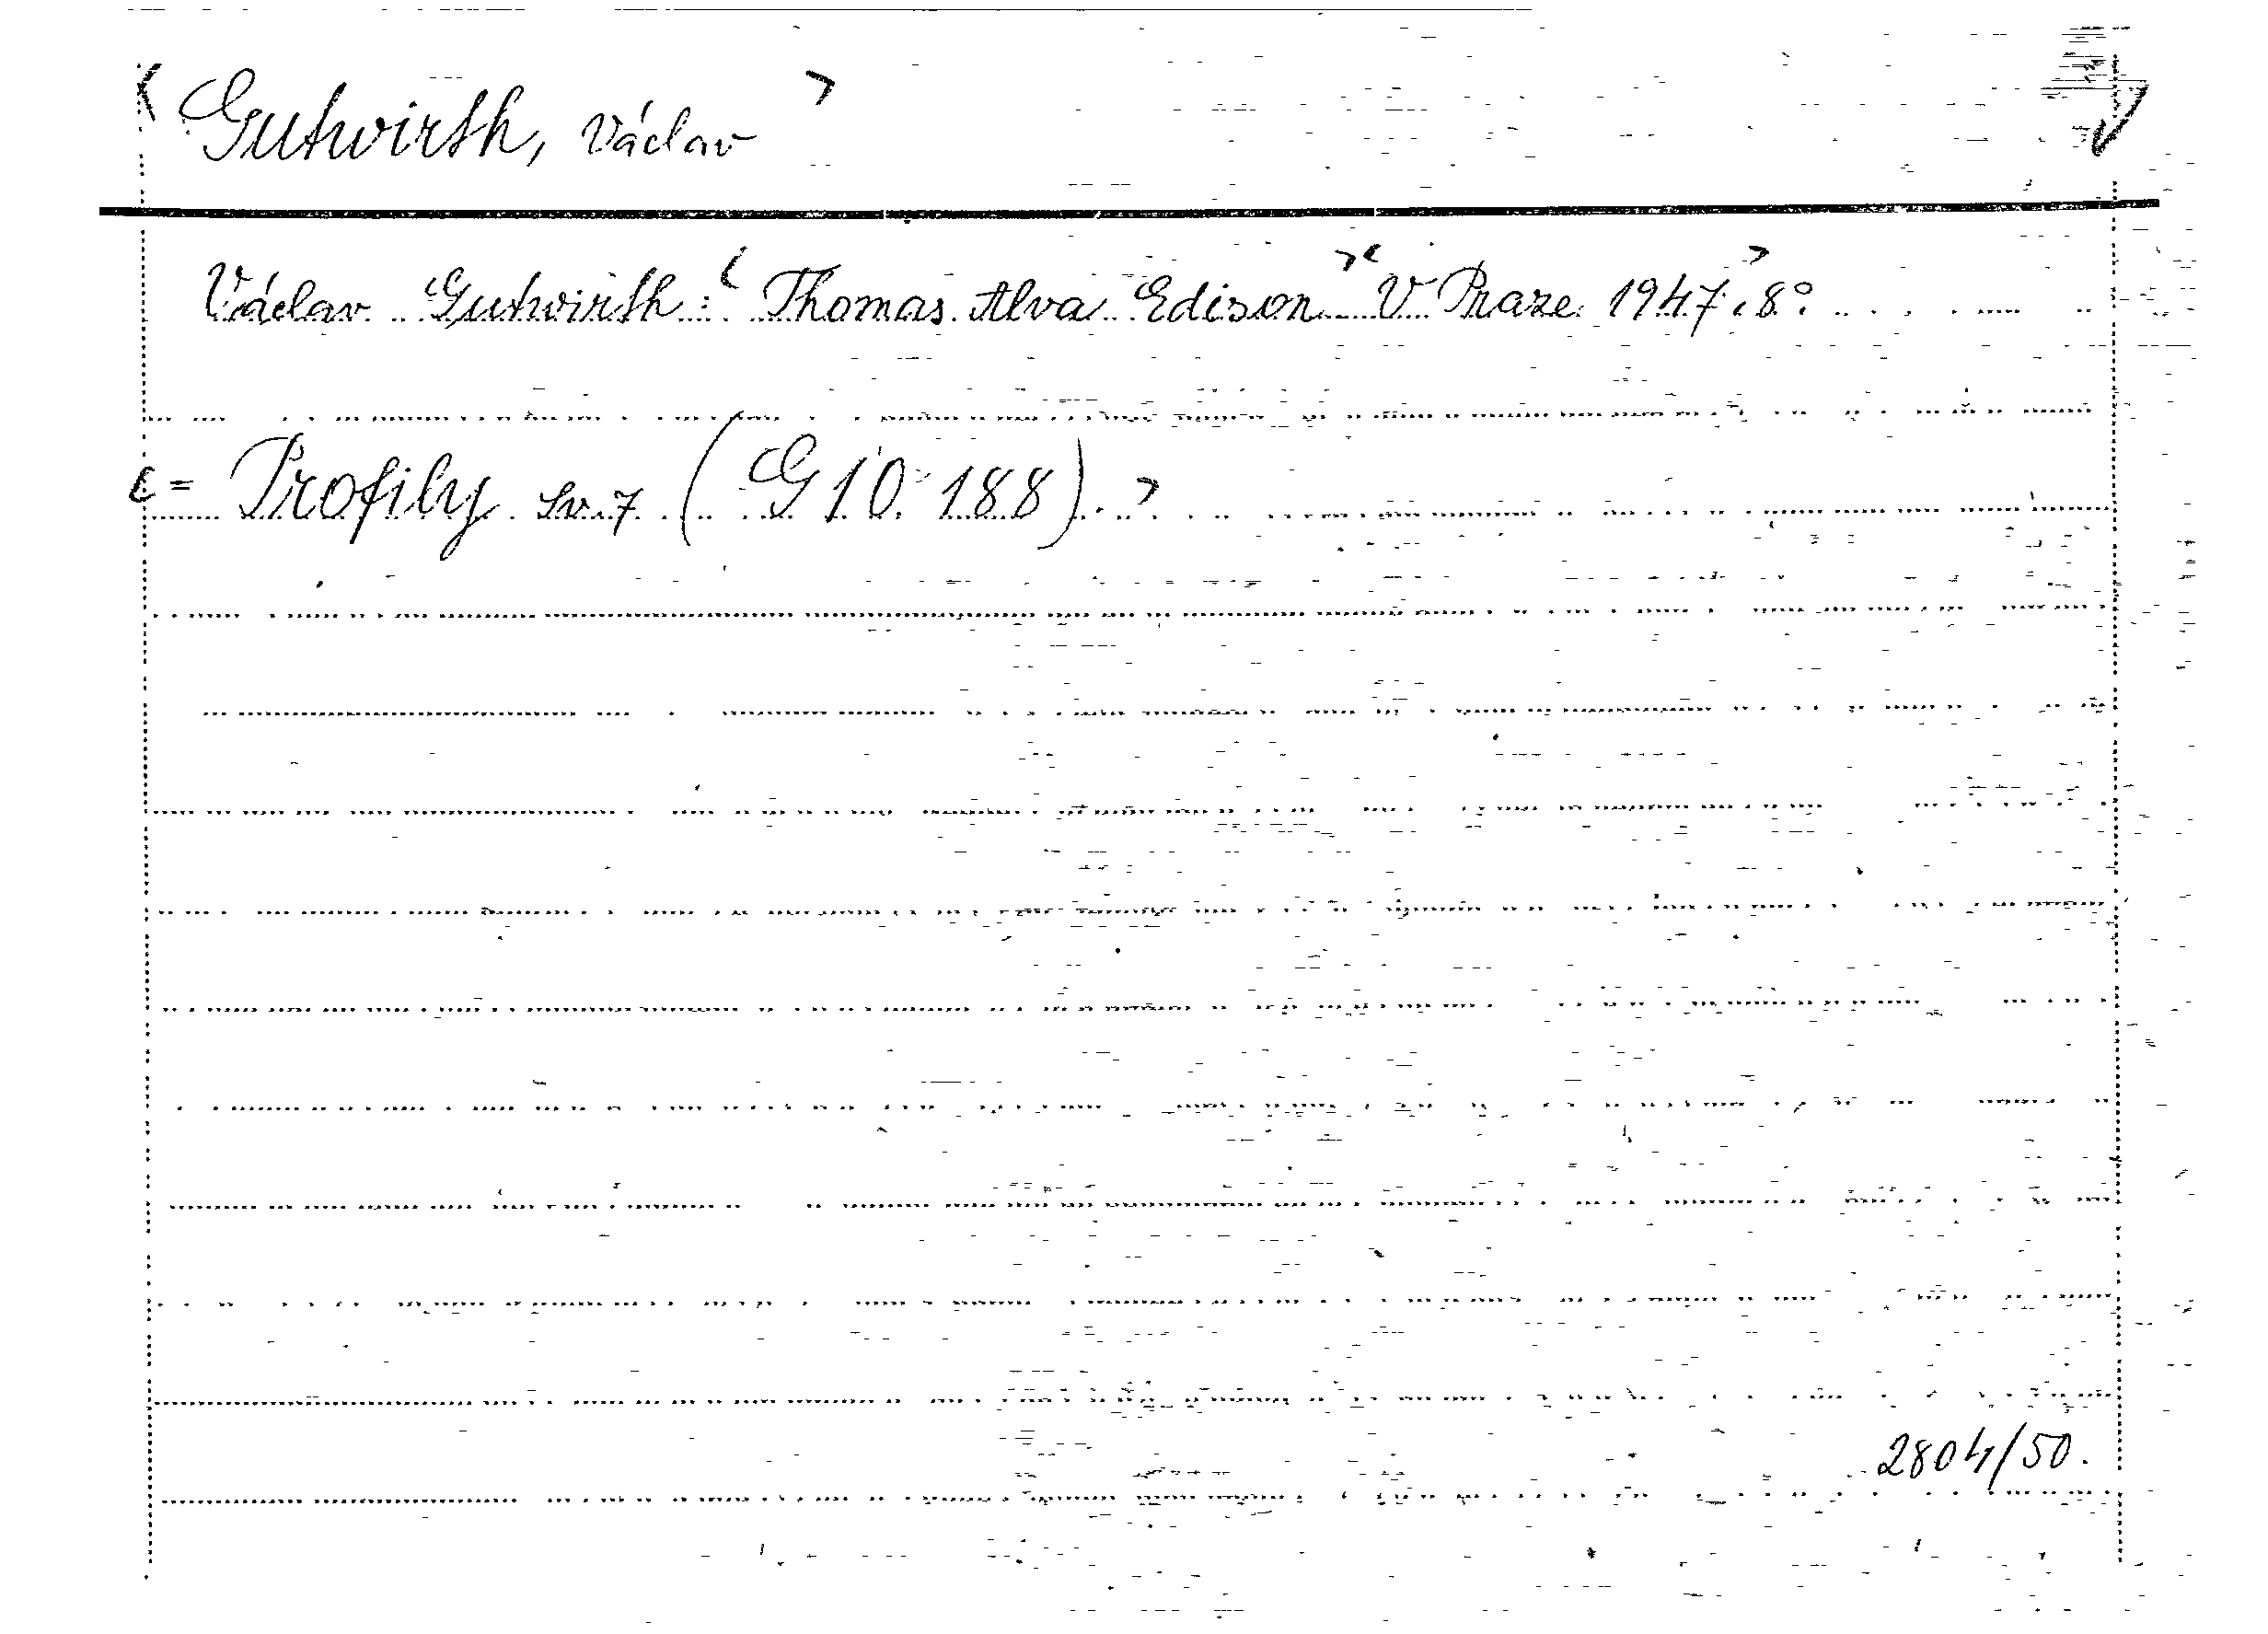 < Gutwirth, Václav >
Václav Gutwirth: < Thomas Alva Edison >< V Praze 1947. > 8°.
< = Profily sv. 7 (G 10.188). >
2804/50.